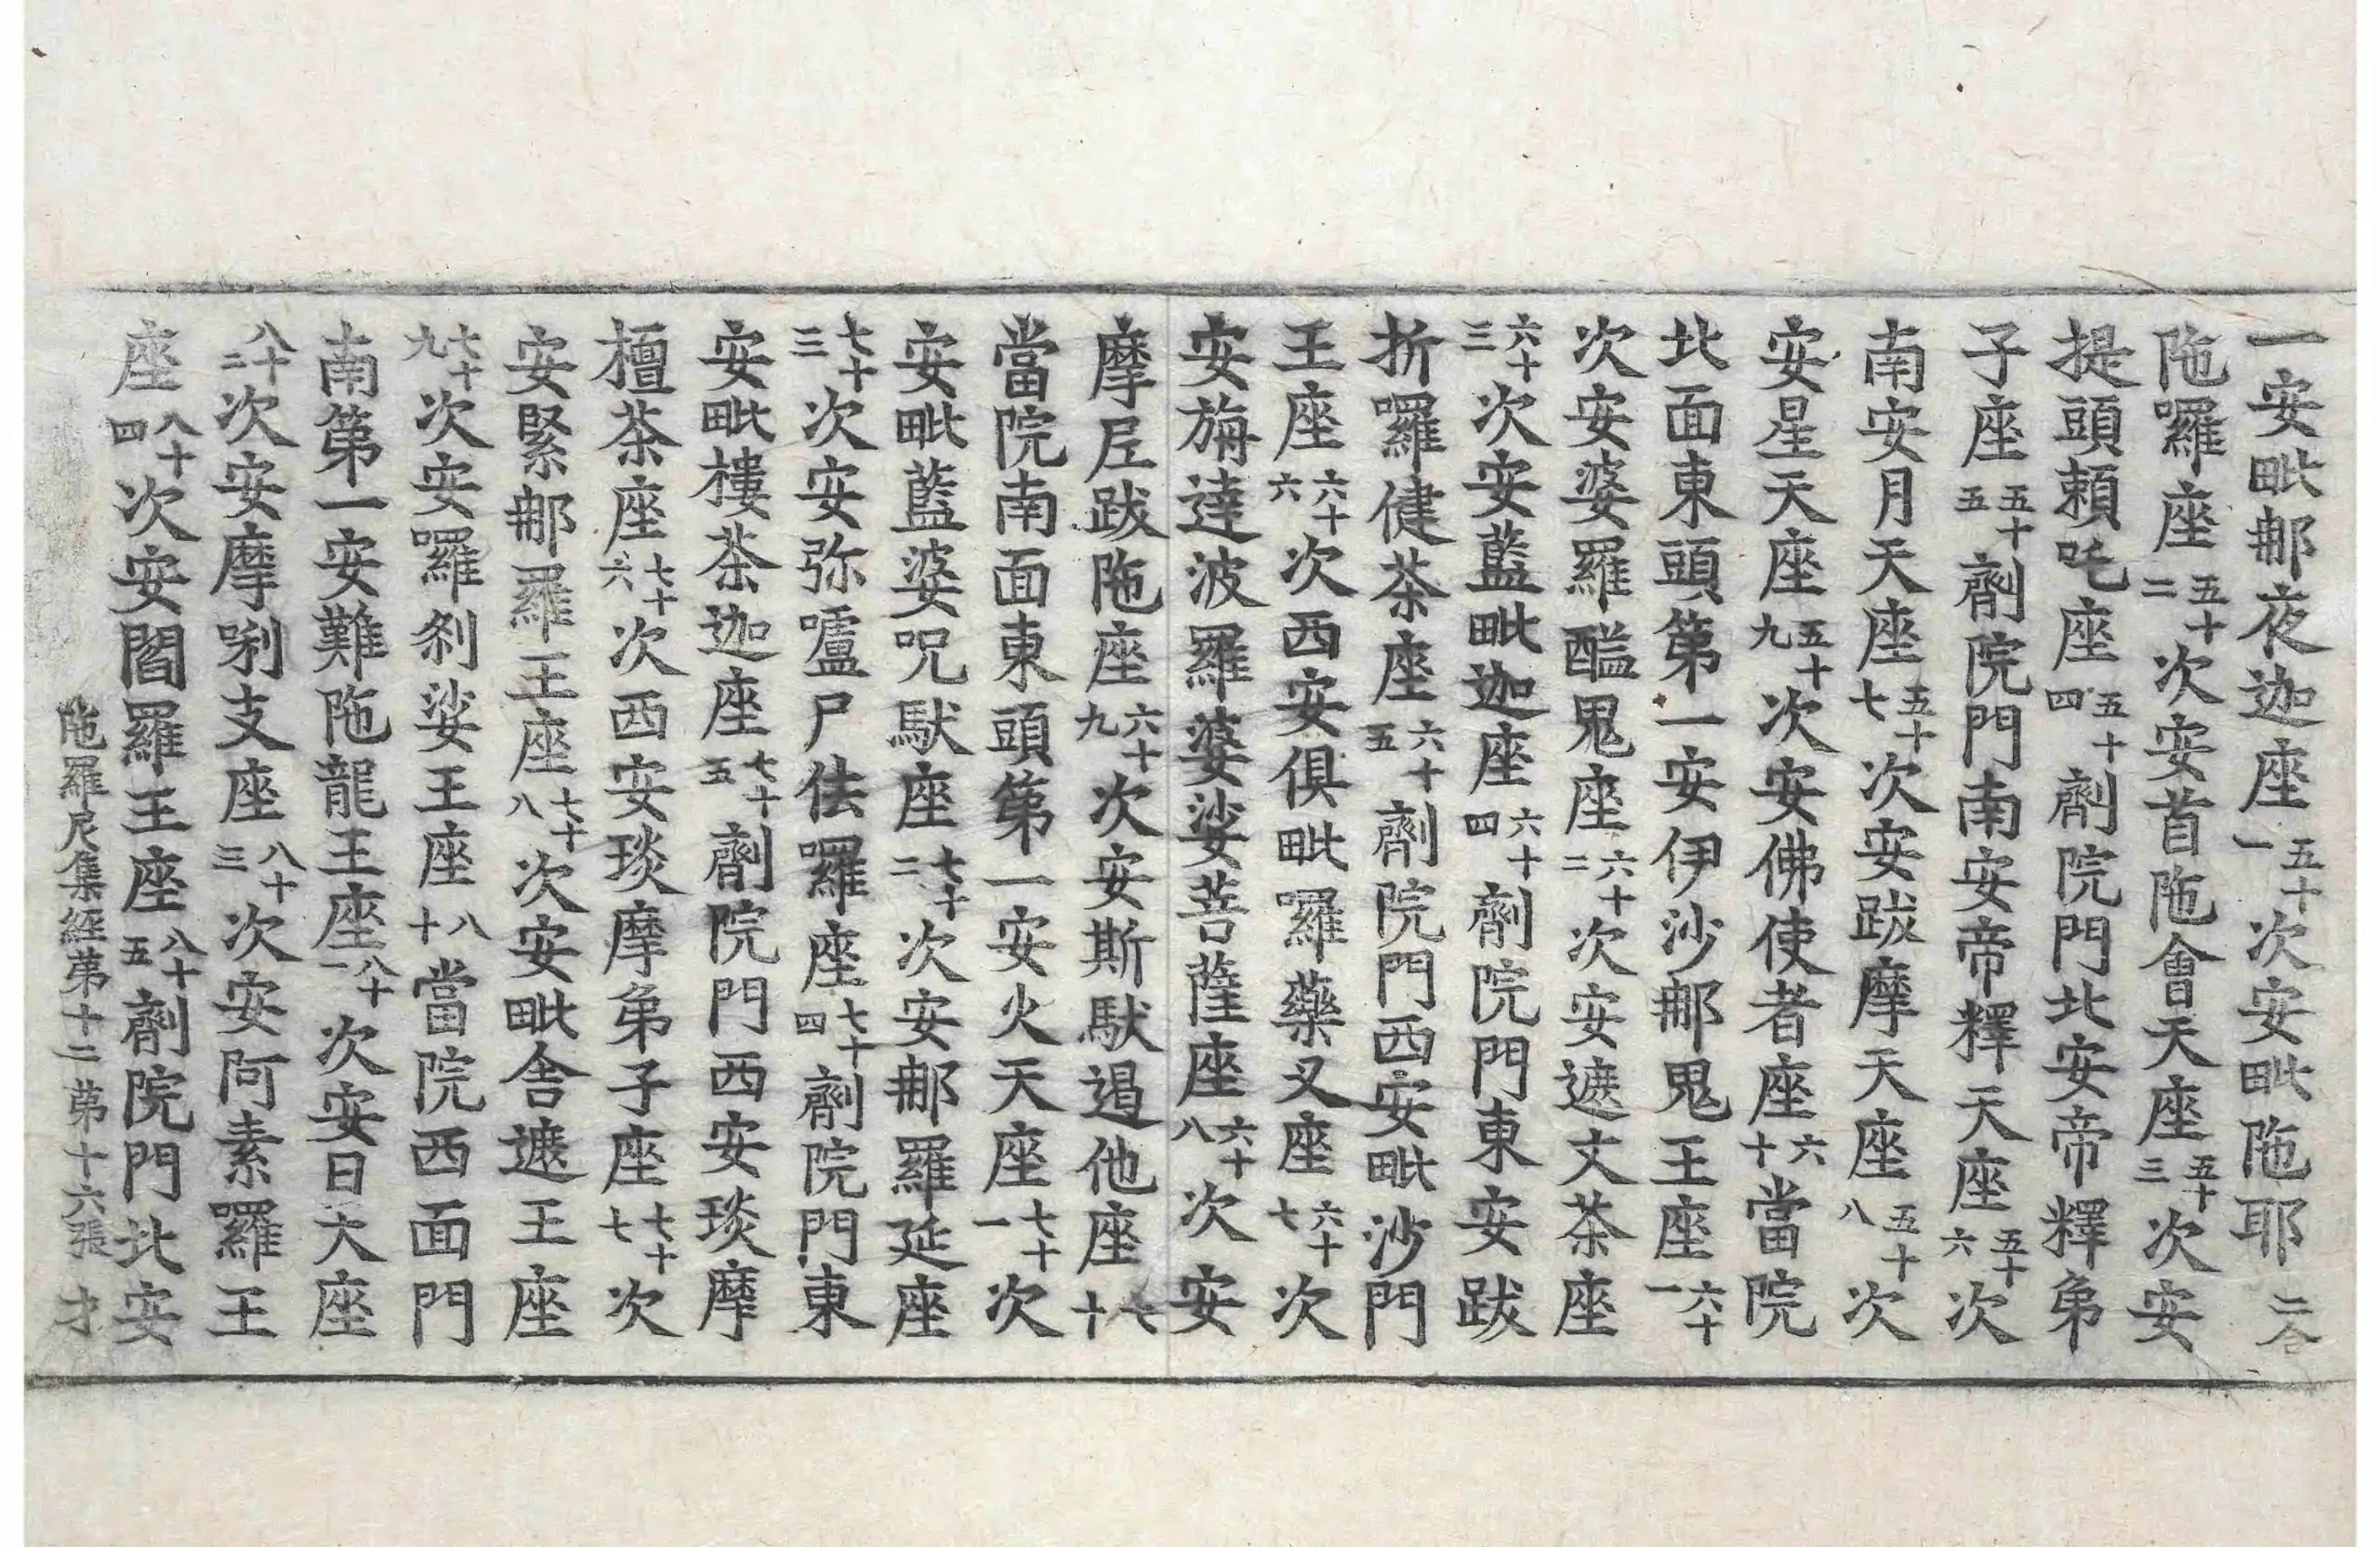 一安毗那夜迦座五十一次安毗陁耶二合
陁囉座五十二次安首陁會天座五十三次安
提頭頼吒座五十四劑院門北安帝釋弟
子座五十五劑院門南安帝釋天座五十六次
南安月天座五十七次安跋摩天座五十八次
安星天座五十九次安佛使者座六十當院
北面東頭第一安伊沙那鬼王座六十一
次安婆羅醯鬼座六十二次安遮文茶座
六十三次安藍毗迦座六十四劑院門東安跋
折囉健茶座六十五劑院門西安毗沙門
王座六十六次西安俱毗囉藥叉座六十七次
安旃達波羅婆娑菩薩座六十八次安
摩尼跋陁座六十九次安斯馱遏他座七十
當院南面東頭第一安火天座七十一次
安毗藍婆咒馱座七十二次安那羅延座
七十三次安弥嚧尸佉囉座七十四劑院門東
安毗樓茶迦座七十五劑院門西安琰摩
檀茶座七十六次西安琰摩弟子座七十七次
安緊那羅王座七十八次安毗舍遮王座
七十九次安囉刹娑王座八十當院西面門
南第一安難陁龍王座八十一次安日天座
八十二次安摩唎支座八十三次安阿素羅王
座八十四次安閻羅王座八十五劑院門北安
陁羅尼集經第十二 第十六張 才